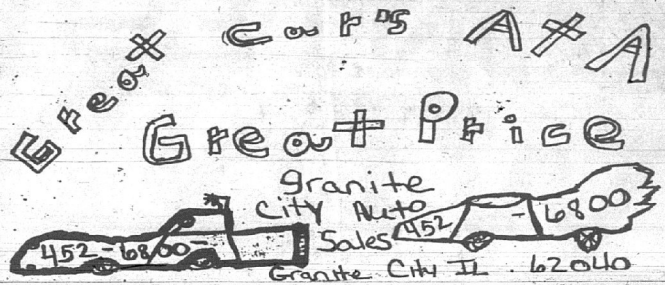 Great Car's At A
Great Price
granite
City Auto
Sales
452-6800-
452-6800
Granite City IL. 62040